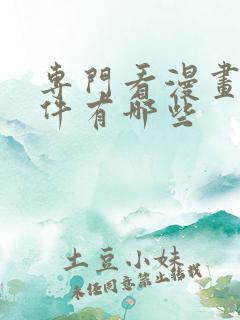 專門看漫畫
件有哪些
土豆小妹
未經同意禁止轉載